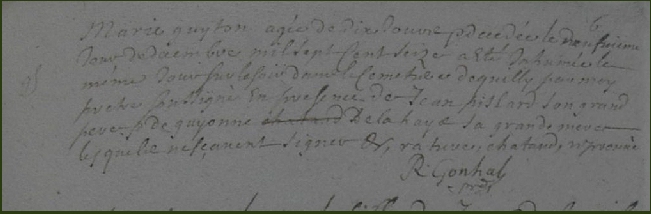 Marie guyton agée de dix jours decedée le
Jour de decembre mil sept cent seize a esté Inhumée le
meme Jour sur le soir dans le Cemetiere de quilly par moy
pretre soussigné En presence de Jean pillard son grand
pere & de guyonne chatand De la haye sa grande mere
lesquels ne sçauent signer &, rature, chatand, approuvé
R: Gonhal